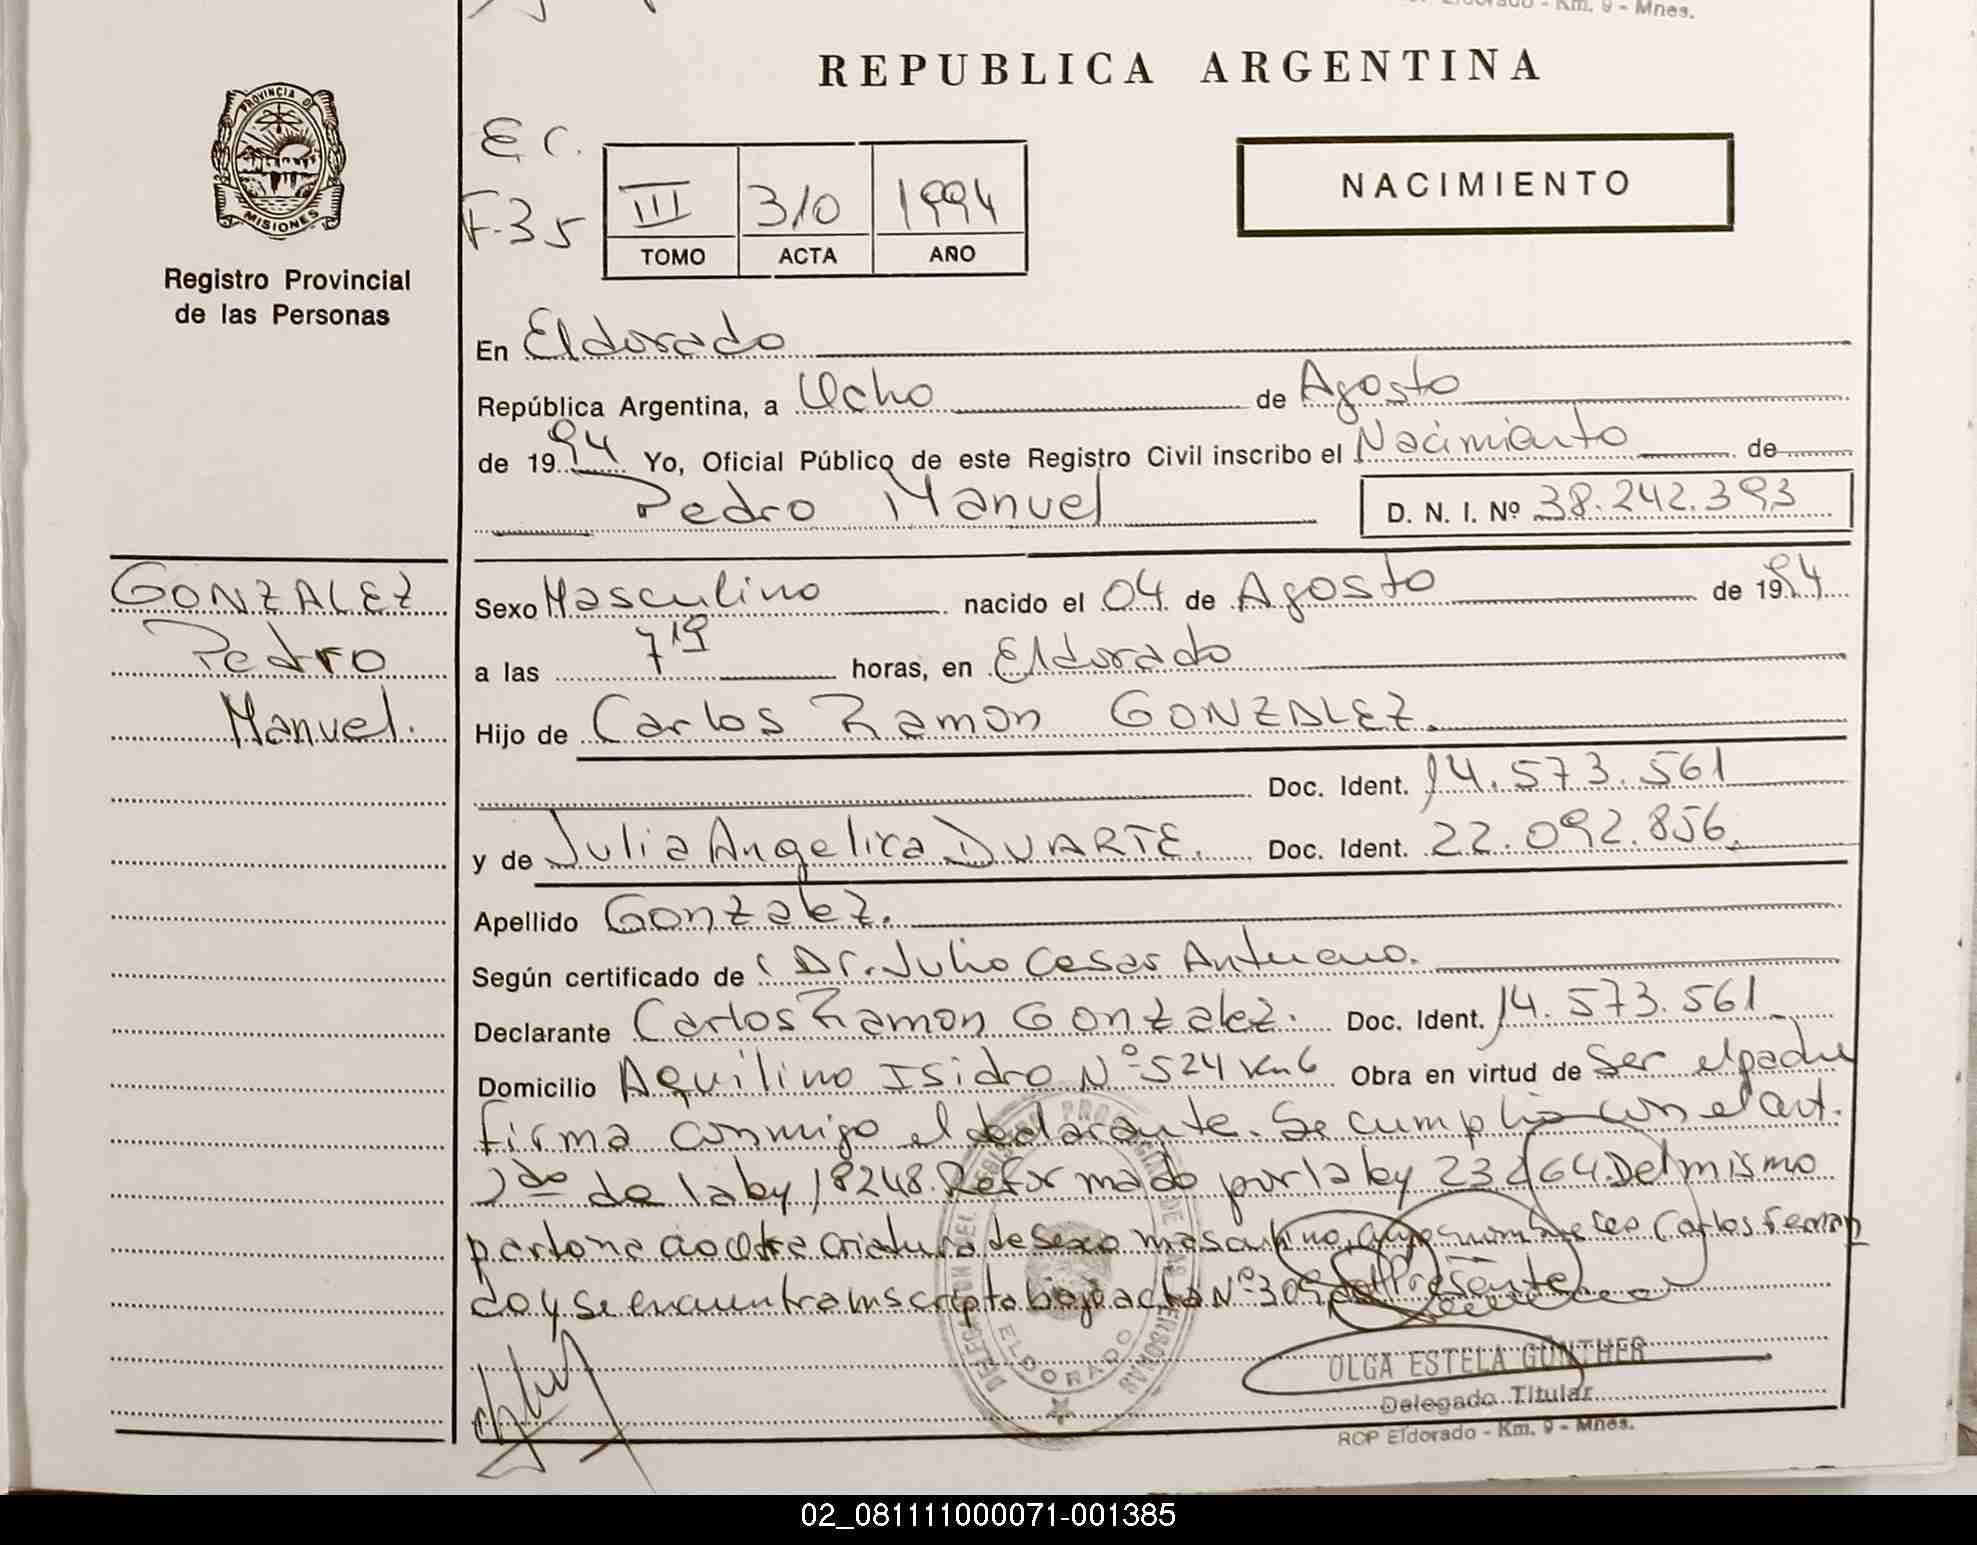 Km. 9 - Mnes.
REPUBLICA ARGENTINA
PROVINCIA DE
MISIONES
Registro Provincial
de las Personas
E.C.
F-35
III 310 1994
TOMO ACTA AÑO
NACIMIENTO
En Eldorado
República Argentina, a Ocho de Agosto
de 1994 Yo, Oficial Público de este Registro Civil inscribo el Nacimiento de
Pedro Manuel D. N. I. Nº 38.242.393
GONZALEZ
Pedro
Manuel.
Sexo Masculino nacido el 04 de Agosto de 1994
a las 7 19 horas, en Eldorado
Hijo de Carlos Ramon GONZALEZ.
Doc. Ident. 14.573.561
y de Julia Angelica DUARTE. Doc. Ident. 22.092.856.
Apellido Gonzalez.
Según certificado de Dr. Julio Cesar
Declarante Carlos Ramon Gonzalez. Doc. Ident. 14.573.561
Domicilio Aquilino Isidro Nº 524 Km 6 Obra en virtud de Ser el padre
firma conmigo el declarante. Se cumplio con el art.
2do de la ley 18248. Reformado por la ley 23264. Del mismo
parto nacio otra criatura de sexo masculino, cuyo nombre es Carlos Fernan
do y se encuentra inscripta bajo acta Nº 309 del Presente
ELDORADO
OLGA ESTELA GUNTHER
Delegado Titular
RCP Eldorado - Km. 9 - Mnes.
02_081111000071-001385